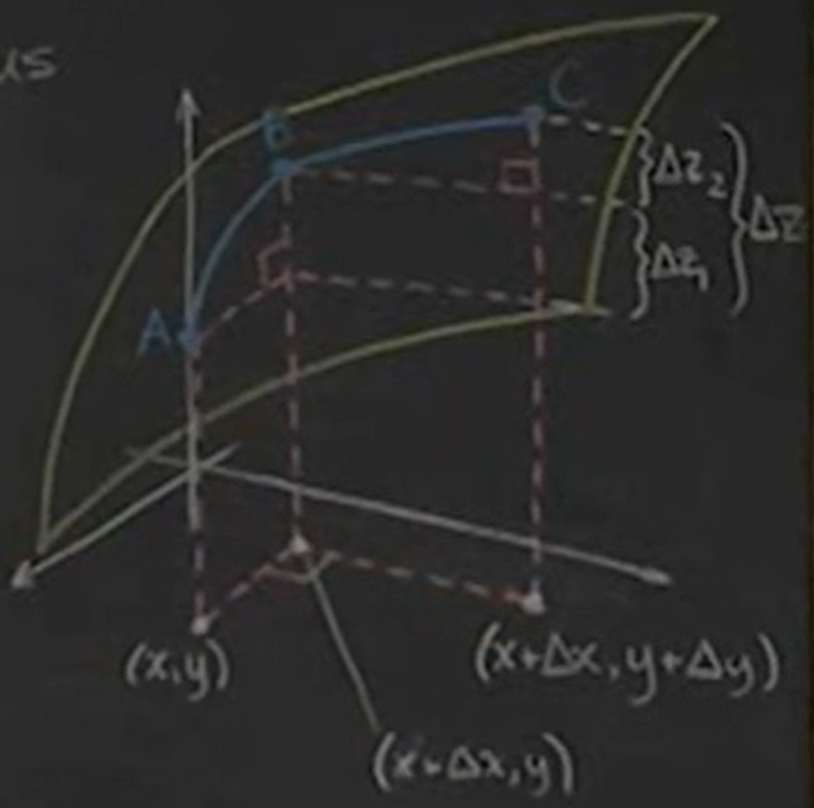 us
C
B
Δz₂
Δz
Δz₁
A
(x,y)
(x+Δx, y+Δy)
(x+Δx, y)